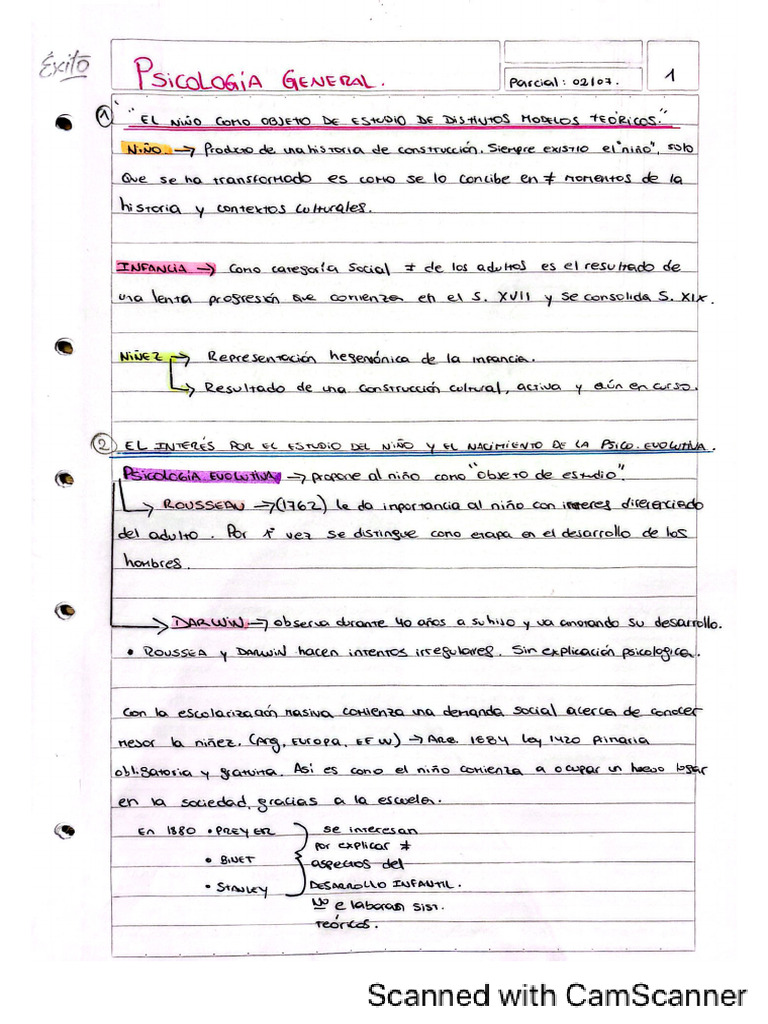 Éxito
PSICOLOGÍA GENERAL.
Parcial: 02/07.
1
① "EL NIÑO COMO OBJETO DE ESTUDIO DE DISTINTOS MODELOS TEÓRICOS."
NIÑO. → Producto de una historia de construcción. Siempre existió el "niño", solo
que se ha transformado es como se lo concibe en ≠ momentos de la
historia y contextos culturales.
INFANCIA → Como categoría social ≠ de los adultos es el resultado de
una lenta progresión que comienza en el S. XVII y se consolida S. XIX.
NIÑEZ → Representación hegemónica de la infancia.
↳ Resultado de una construcción cultural, activa y aún en curso.
② EL INTERÉS POR EL ESTUDIO DEL NIÑO Y EL NACIMIENTO DE LA PSICO. EVOLUTIVA.
PSICOLOGÍA EVOLUTIVA → propone al niño como "objeto de estudio".
↳ ROUSSEAU → (1762) le da importancia al niño con interes diferenciado
del adulto. Por 1° vez se distingue como etapa en el desarrollo de los
hombres.
→ DARWIN → observa durante 40 años a su hijo y va anotando su desarrollo.
• ROUSSEA y DARWIN hacen intentos irregulares. Sin explicación psicologica.
Con la escolarización masiva comienza una demanda social acerca de conocer
mejor la niñez. (Arg, EUROPA, EEUU) → ARG. 1884 ley 1420 Primaria
obligatoria y gratuita. Asi es como el niño comienza a ocupar un nuevo lugar
en la sociedad, gracias a la escuela.
En 1880 • PREYER
• BINET
• STANLEY
se interesan
por explicar ≠
aspectos del
DESARROLLO INFANTIL.
No elaboran sist.
teóricos.
Scanned with CamScanner